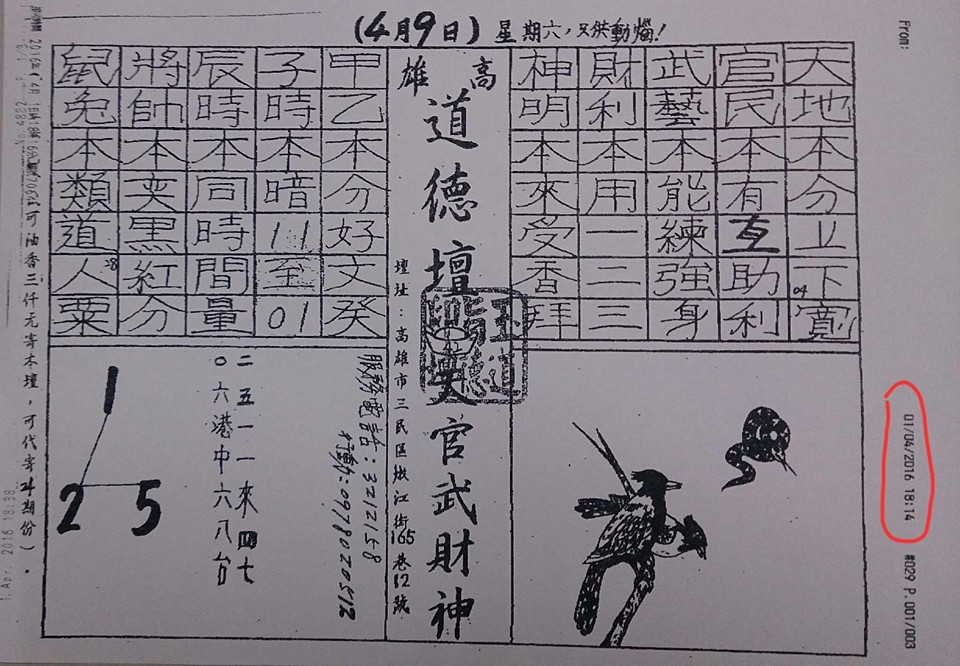 (4月9日) 星期六，只供動惱！
天地本分立下寬
04
官民本有互助利
武藝本能練強身
財利本用一二三
神明本來受香拜
高雄
道德壇天官武財神
壇址：高雄市三民區嫩江街165巷12號
甲乙本分好文癸
子時本暗11至01
辰時本同時間量
將帥本奕黑紅分
鼠兔本類道人粟
28
服務電話：3212158
行動：0978020512
二五一一來四七
〇六港中六八台
1
2 5
可油香三仟元寄本壇，可代寄24期份)。
From:
01/04/2016 18:14
#029 P.001/003
1.Apr. 2016 18:38